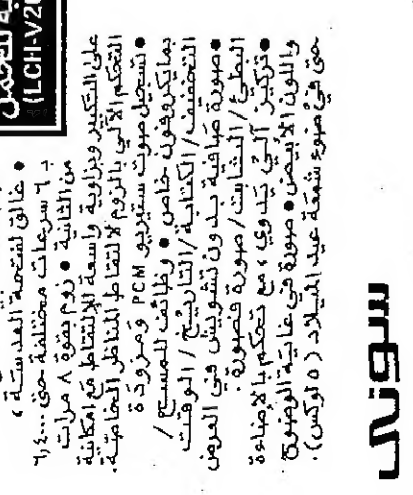 (LCH-V20
• غالق لشتحة العدستة ،
بـ ٦ سرعات مختلفة حتى ٦,٤٠٠٠
من الثانية • زوم بقوة ٨ مرات
على التكبير وبزاوية واسعة الإلتقاط مع امكانية
التحكم الآلي بالزوم لالتقاط المناظر الخاصة.
• تسجيل صوت ستيريو PCM ومزودة
بمايكروفون خاص • وظائف للمسح /
التخفيف / الكتابة / التاريخ / الوقت
• صورة صافية بدون تشويش في العرض
البطئ / الثابت / صورة فصورة.
• تركيز آلي يدوي ، مع تحكم بالإضاءة
واللون الأبيض • صورة في غاية الوضوح
حتى في ضوء شمعة عيد الميلاد (٥ لوكس).
سوني